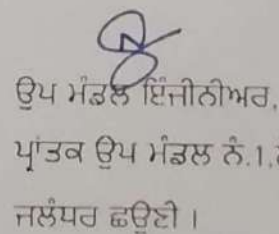 ਉਪ ਮੰਡਲ ਇੰਜੀਨੀਅਰ,
ਪ੍ਰਾਂਤਕ ਉਪ ਮੰਡਲ ਨੰ.1,
ਜਲੰਧਰ ਛਾਉਣੀ ।